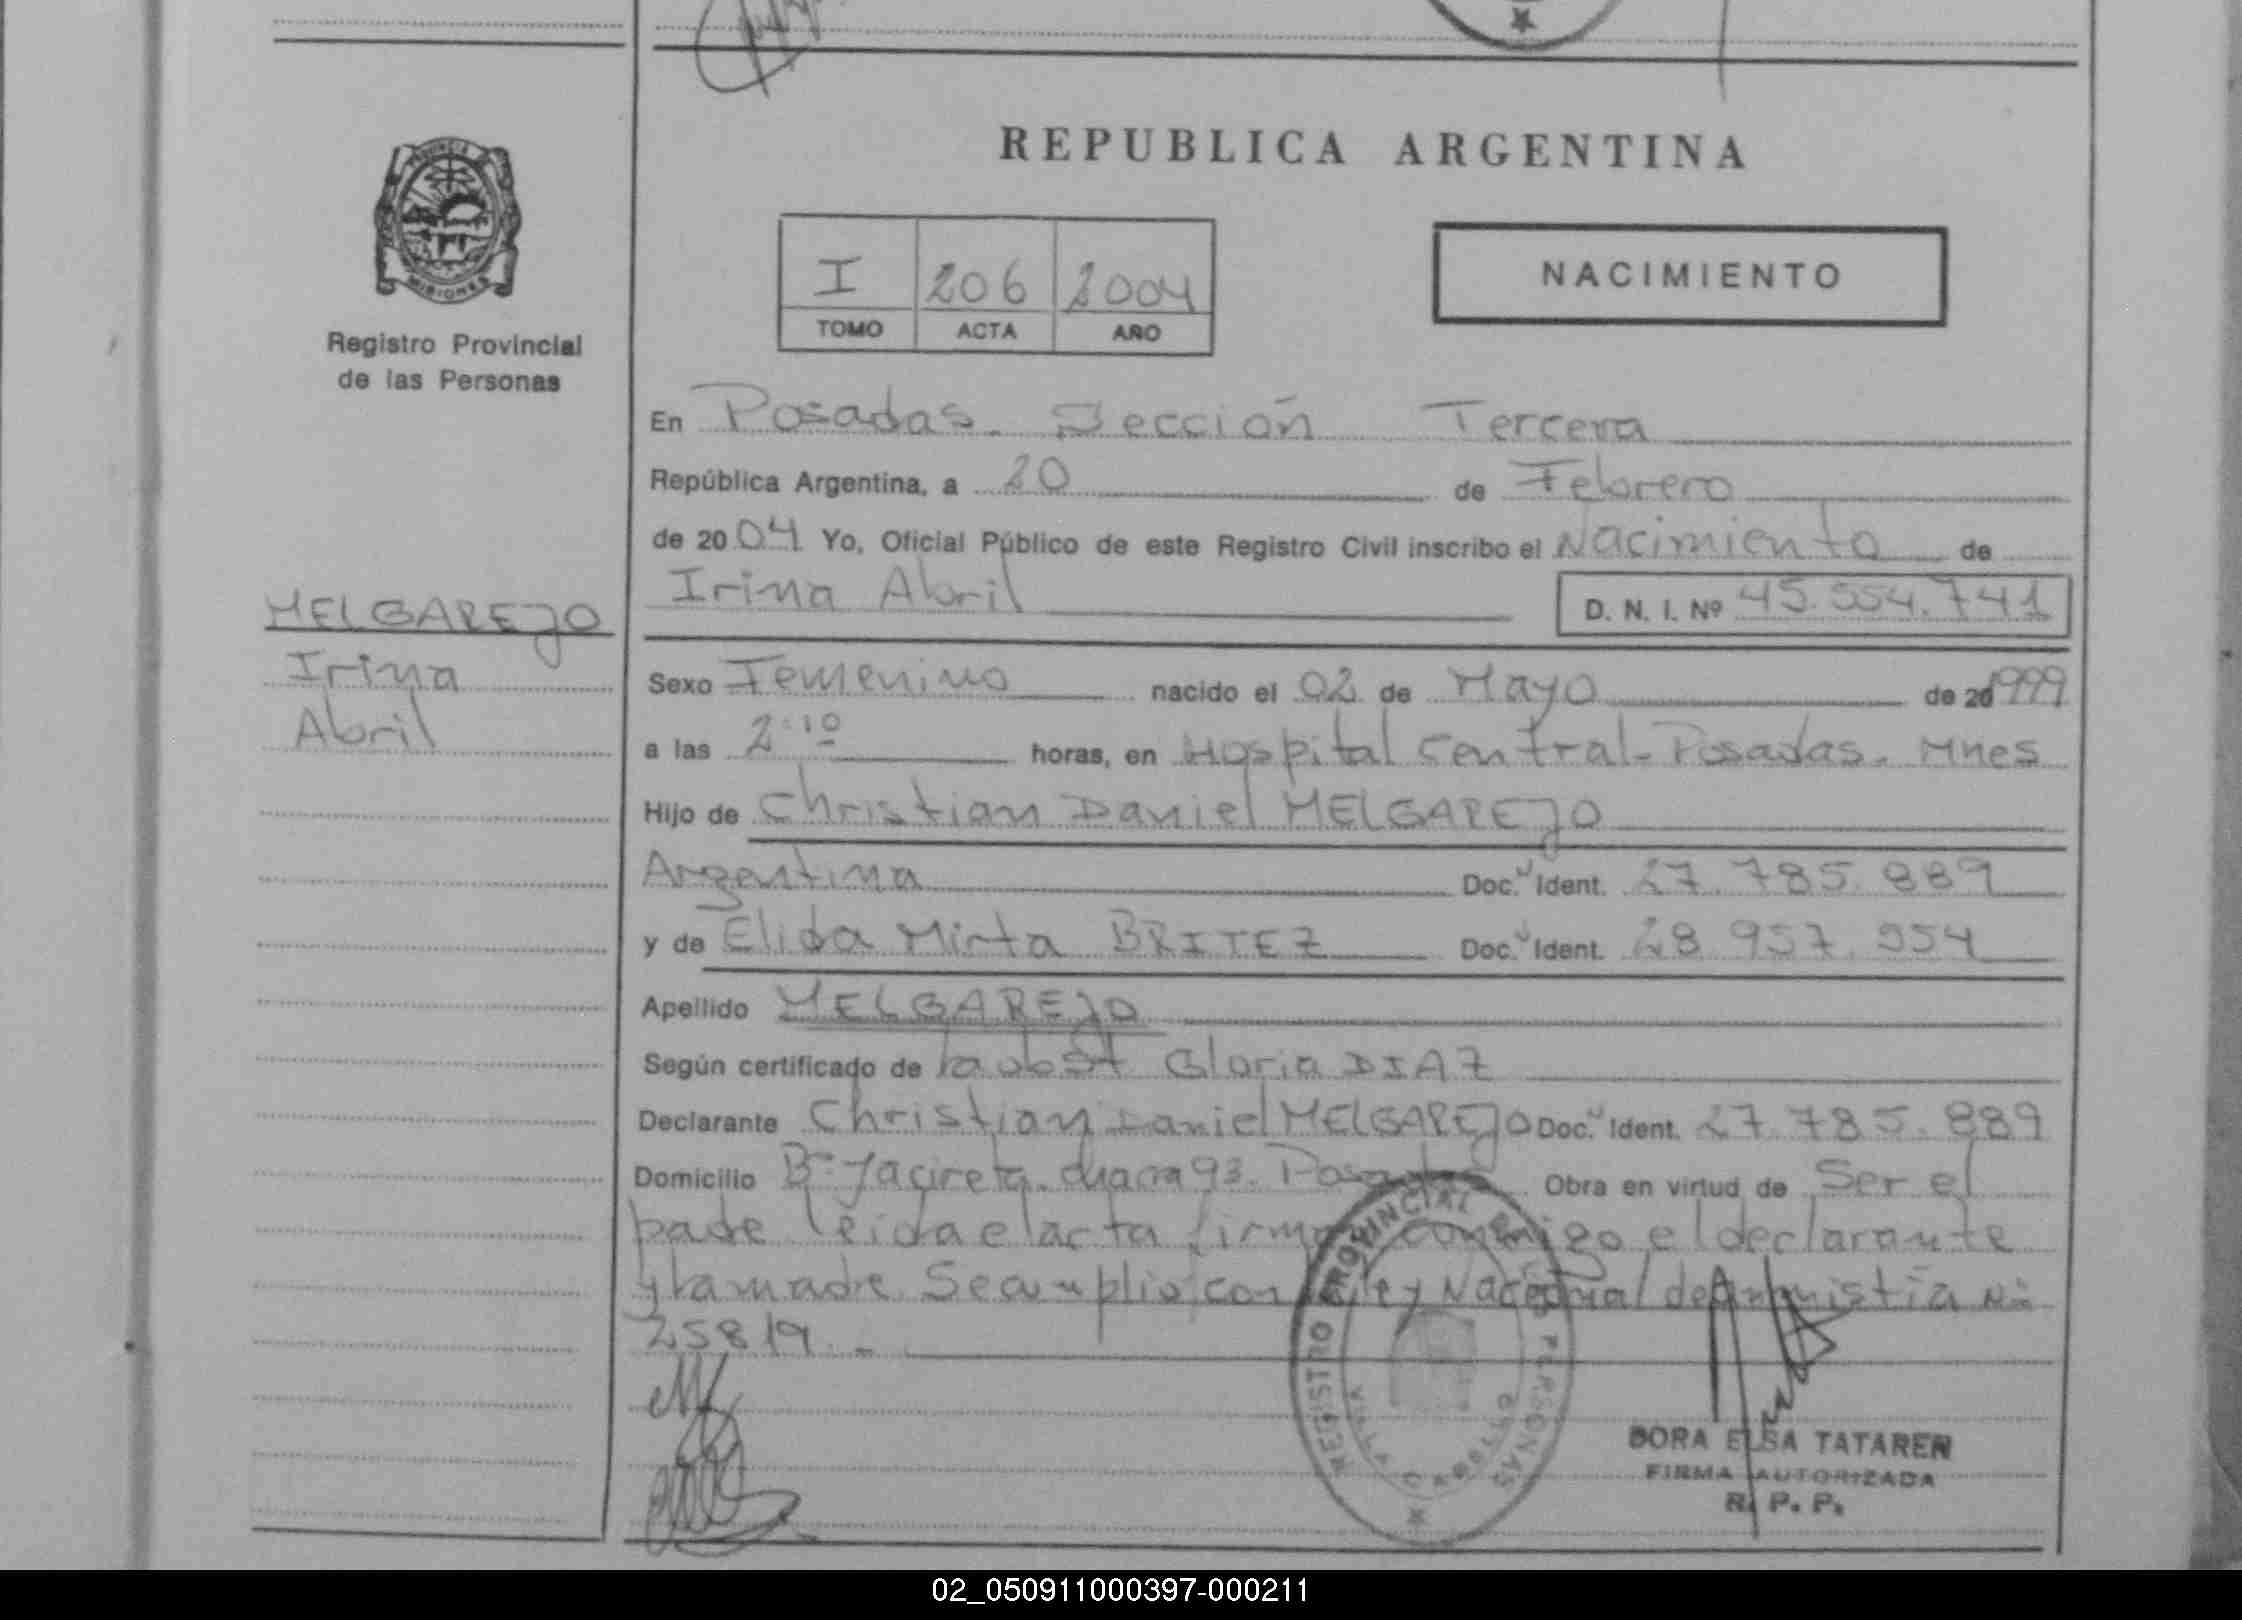 REPUBLICA ARGENTINA
PROVINCIA DE
MISIONES
Registro Provincial
de las Personas
I 206 2004
TOMO ACTA AÑO
NACIMIENTO
En Posadas. Sección Tercera
República Argentina, a 20 de Febrero
de 2004 Yo, Oficial Público de este Registro Civil inscribo el Nacimiento de
Irina Abril D. N. I. Nº 45.554.741
MELGAREJO
Irina
Abril
Sexo Femenino nacido el 02 de Mayo de 20 1999
a las 2:10 horas, en Hospital Central-Posadas. Mnes
Hijo de Christian Daniel MELGAREJO
Argentina Doc. Ident. 27.785.889
y de Elida Mirta BRITEZ Doc. Ident. 28.957.554
Apellido MELGAREJO
Según certificado de la obst Gloria DIAZ
Declarante Christian Daniel MELGAREJO Doc. Ident. 27.785.889
Domicilio Bº Yacireta. chacra 93. Posadas Obra en virtud de Ser el
padre leida el acta firma conmigo el declarante
y la madre. Se cumplio con Ley Nacional de Amnistia Nº
25819.-
REGISTRO PROVINCIAL DE LAS PERSONAS
VILLA CABELLO
DORA ELSA TATAREN
FIRMA AUTORIZADA
R. P. P.
02_050911000397-000211